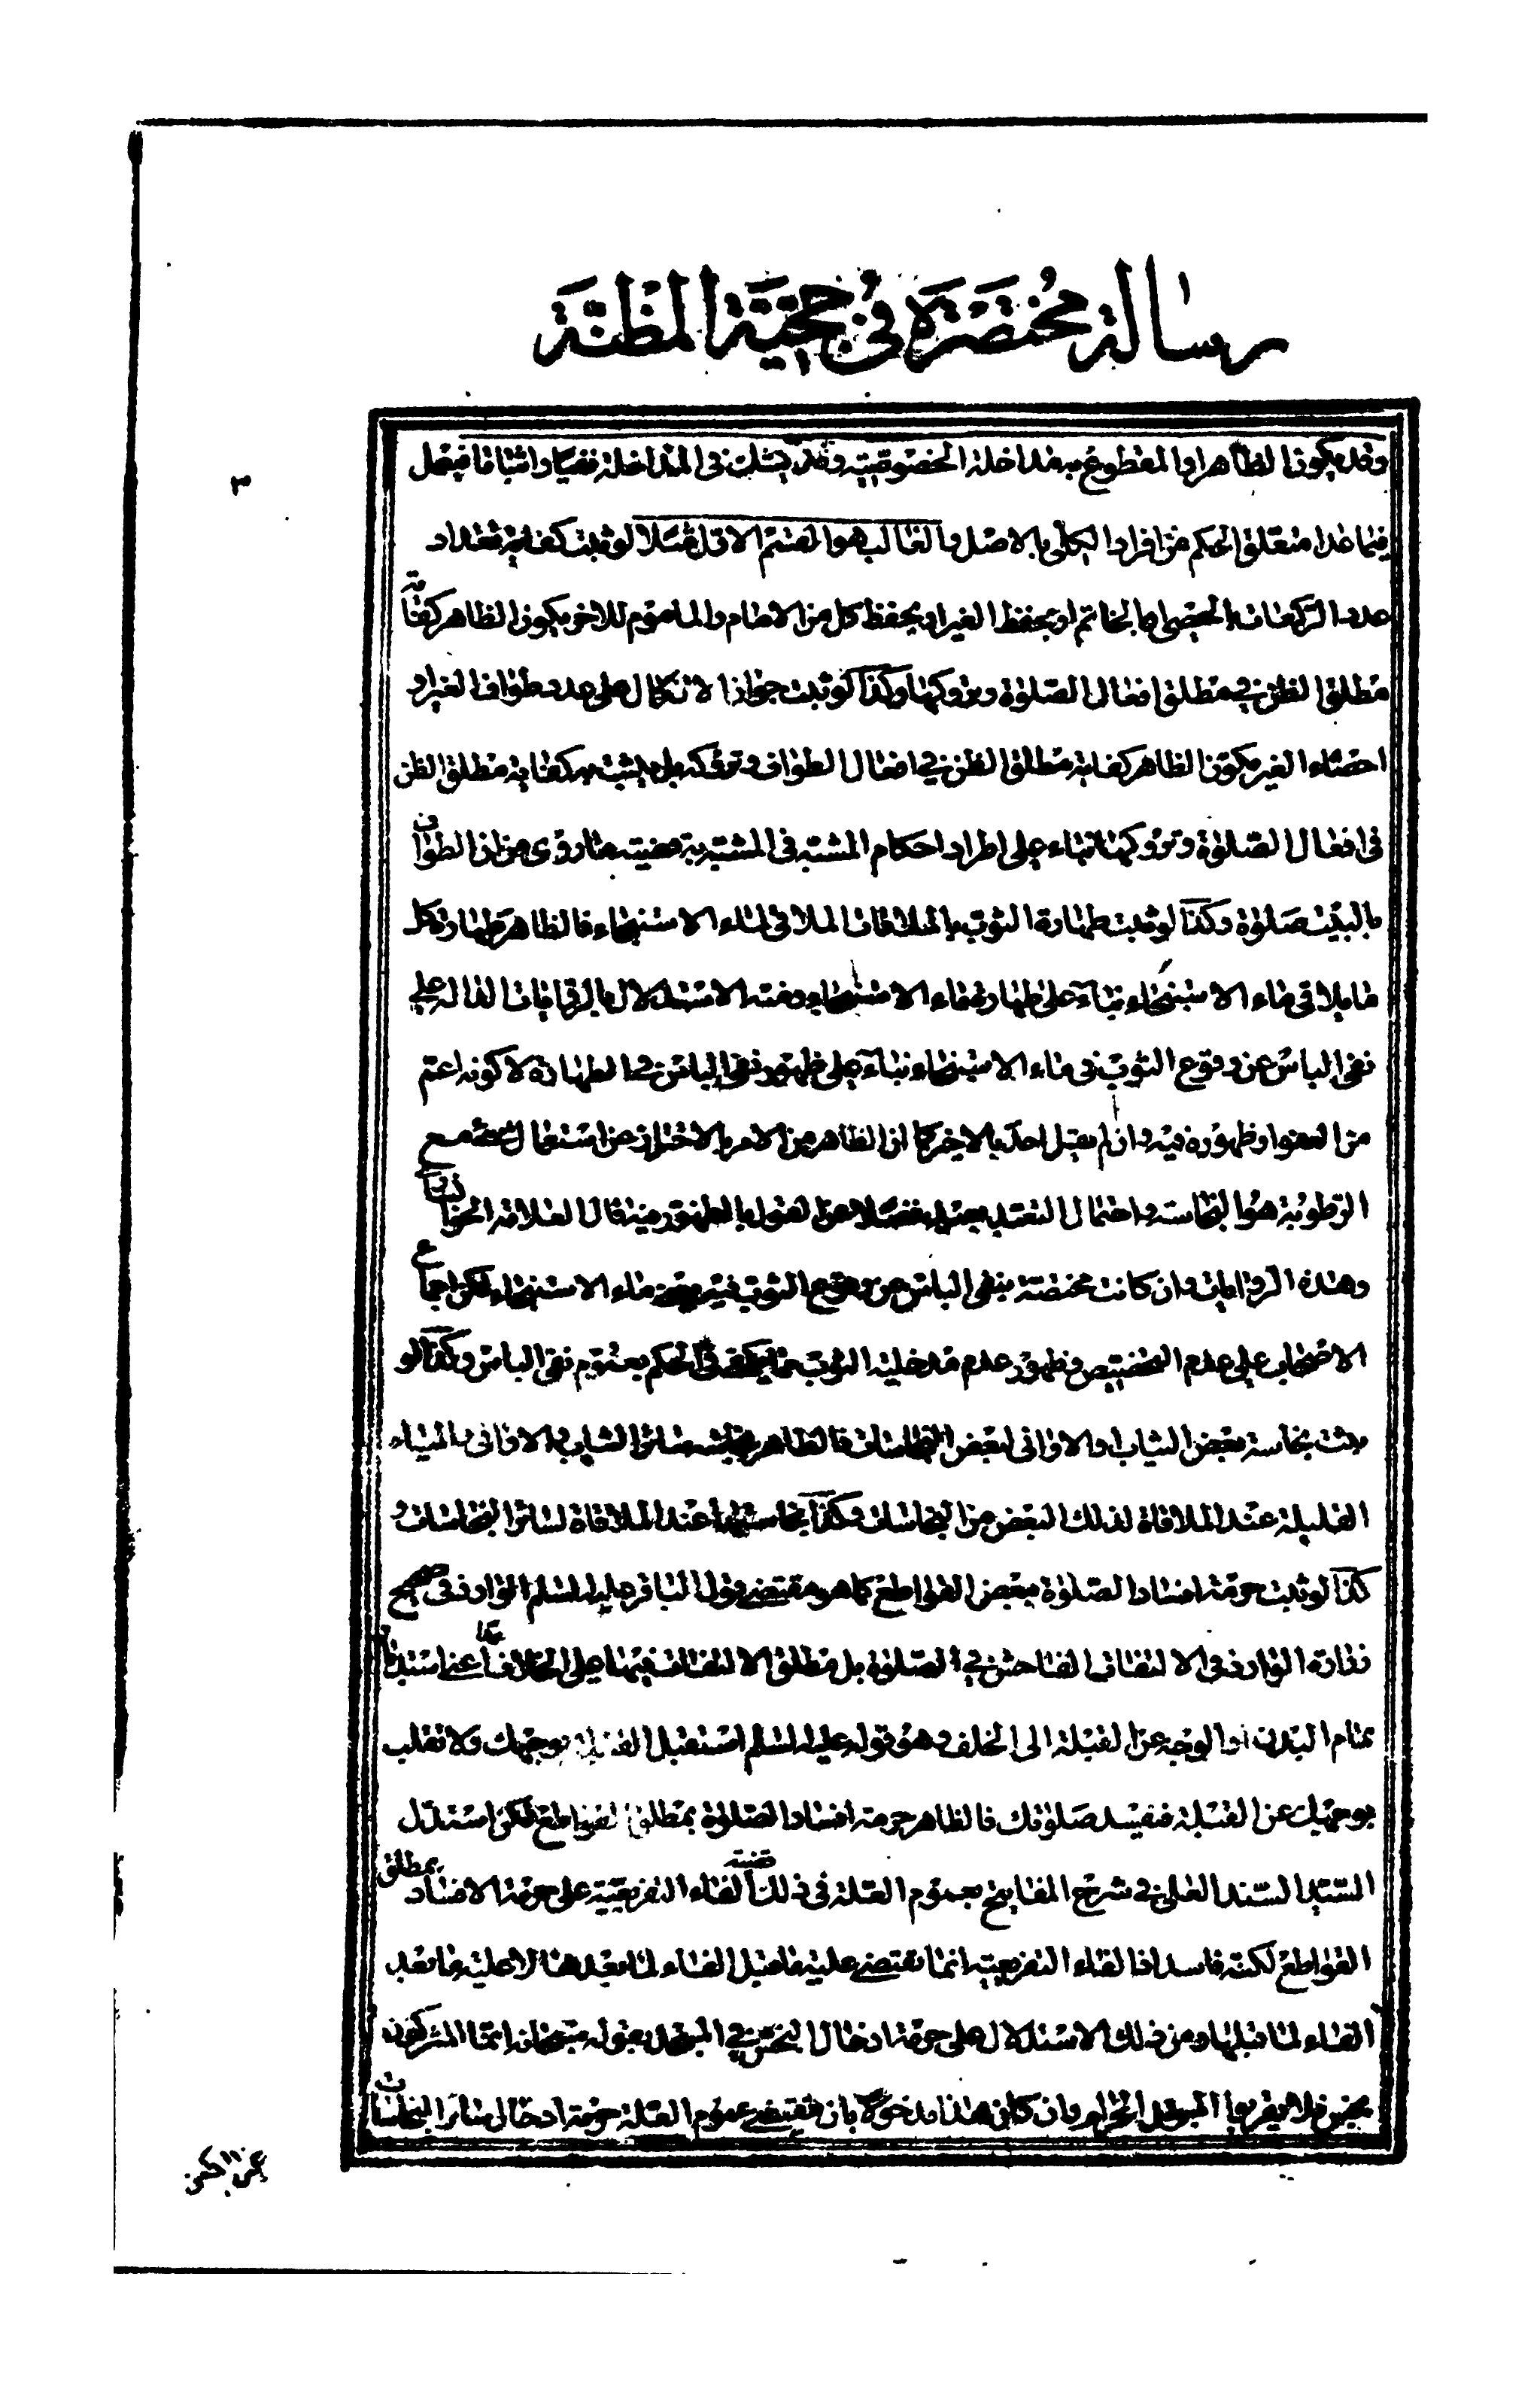 رسالة مختصرة في حجية المظنة
٣
وقد يكون الظاهر او المقطوع به مداخلة الخصوصية وقد يشك في المداخلة نفيا واثباتا فيعمل
فيما عدا متعلق الحكم من افراد الكلي بالاصل والغالب هو القسم الاول مثلا لو ثبت كفاية تعداد
عدد الركعات بالحصى او بالخاتم او بحفظ الغير او بحفظ كل من الامام والماموم للاخر يكون الظاهر كفاية
مطلق الظن في مطلق افعال الصلوة وتروكها وكذا لو ثبت جواز الاتكال على عدد طواف الغير او
احصاء الغير يكون الظاهر كفاية مطلق الظن في افعال الطواف وتروكه بل يثبت به كفاية مطلق الظن
في افعال الصلوة وتروكها بناء على اطراد احكام المشبه في المشبه به قضيته ما روى من ان الطواف
بالبيت صلوة وكذا لو ثبت طهارة الثوب بالملاقات الملاقي لماء الاستنجاء فالظاهر طهارة كل
ما يلاقي ماء الاستنجاء بناء على طهارة ماء الاستنجاء ومنه الاستدلال بالروايات الدالة على
نفي الباس عن وقوع الثوب في ماء الاستنجاء بناء على ظهور نفي الباس في الطهارة لا كونه اعم
من العفو او ظهوره فيه وان لم يقبل احد بالاخير كما ان الظاهر من الامر بالاحتراز عن استعمال شيء مع
الرطوبة هو النجاسة واحتمال التعبد بعيد فضلا عن القول بالظهور فيه قال العلامة الخوانساري
وهذه الروايات وان كانت مختصة بنفي الباس عن وقوع الثوب فيه ماء الاستنجاء لكن اجماع
الاصحاب على عدم التخصيص وظهور عدم مدخلية الثوب مما يكفي في الحكم بعموم نفي الباس وكذا لو
ثبت نجاسة بعض الثياب او الاواني لبعض النجاسات فالظاهر نجاسة سائر الثياب والاواني والمياه
القليلة عند الملاقاة لذلك البعض من النجاسات وكذا نجاستها عند الملاقاة لسائر النجاسات و
كذا لو ثبت حرمة افساد الصلوة ببعض القواطع كما هو مقتضى قول الباقر عليه السلم الوارد في صحيح
زرارة الوارد في الالتفات الفاحش في الصلوة بل مطلق الالتفات فيها على الخلاف عن استدبار
تمام البدن او الوجه عن القبلة الى الخلف وهو قوله عليه السلم استقبل القبلة بوجهك ولا تقلب
بوجهك عن القبلة فتفسد صلوتك فالظاهر حرمة افساد الصلوة بمطلق القواطع لكن استدل
السيد السند العلي في شرح المفاتيح بعموم العلة في ذلك قضية الفاء التفريعية على حرمة الافساد بمطلق
القواطع لكنه فاسد اذ الفاء التفريعية انما تقتضي علية ما قبل الفاء لما بعدها لا علية ما بعد
الفاء لما قبلها ومن ذلك الاستدلال على حرمة ادخال النجس في المسجد بقوله سبحانه انما المشركون
نجس فلا يقربوا المسجد الحرام وان كان هذا مدخولا بان مقتضى عموم العلة حرمة ادخال سائر النجاسات